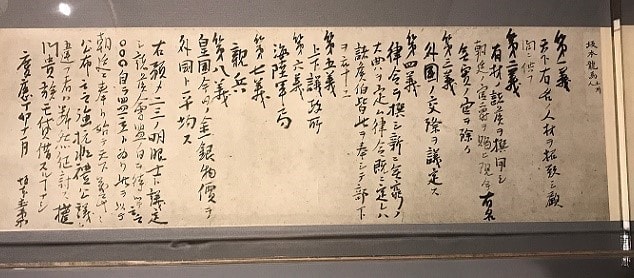 第一義
天下有名ノ人材ヲ招致シ顧
問ニ供フ
第二義
有材ノ諸侯ヲ撰用シ
朝廷ノ官爵ヲ賜ヒ現今有名
無実ノ官ヲ除ク
第三義
外国ノ交際ヲ議定ス
第四義
律令ヲ撰シ新ニ無窮ノ
大典ヲ定ム律令既ニ定レハ
諸侯伯皆此ヲ奉シテ部下
ヲ率ユ
第五義
上下議政所
第六義
海陸軍局
第七義
親兵
第八義
皇国今日ノ金銀物價ヲ
外国ト平均ス
右預メ二三ノ明眼士ト議定
シ諸侯會盟ノ日ヲ待ツテ云云
○○○自ラ盟主ト為リ此ヲ以テ
朝廷ニ奉リ始テ天下萬民ニ
公布云云強抗非禮公議ニ
違フ者ハ断然征討ス權
門貴族モ貸借スルコトナシ
慶應丁卯十一月 坂本直柔